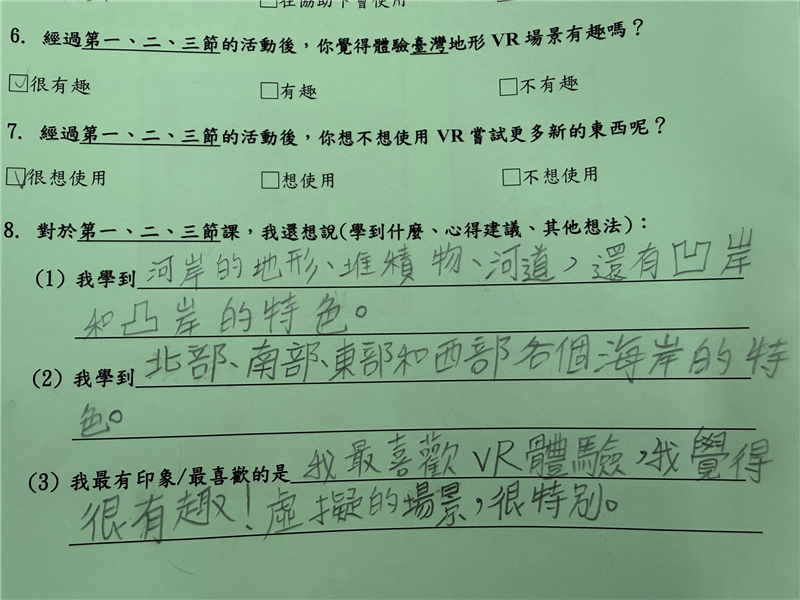 □在協助下會使用
6. 經過第一、二、三節的活動後，你覺得體驗臺灣地形 VR 場景有趣嗎？
☑很有趣 □有趣 □不有趣
7. 經過第一、二、三節的活動後，你想不想使用 VR 嘗試更多新的東西呢？
☑很想使用 □想使用 □不想使用
8. 對於第一、二、三節課，我還想說(學到什麼、心得建議、其他想法)：
(1) 我學到河岸的地形、堆積物、河道，還有凹岸
和凸岸的特色。
(2) 我學到北部、南部、東部和西部各個海岸的特
色。
(3) 我最有印象/最喜歡的是我最喜歡VR體驗，我覺得
很有趣！虛擬的場景，很特別。